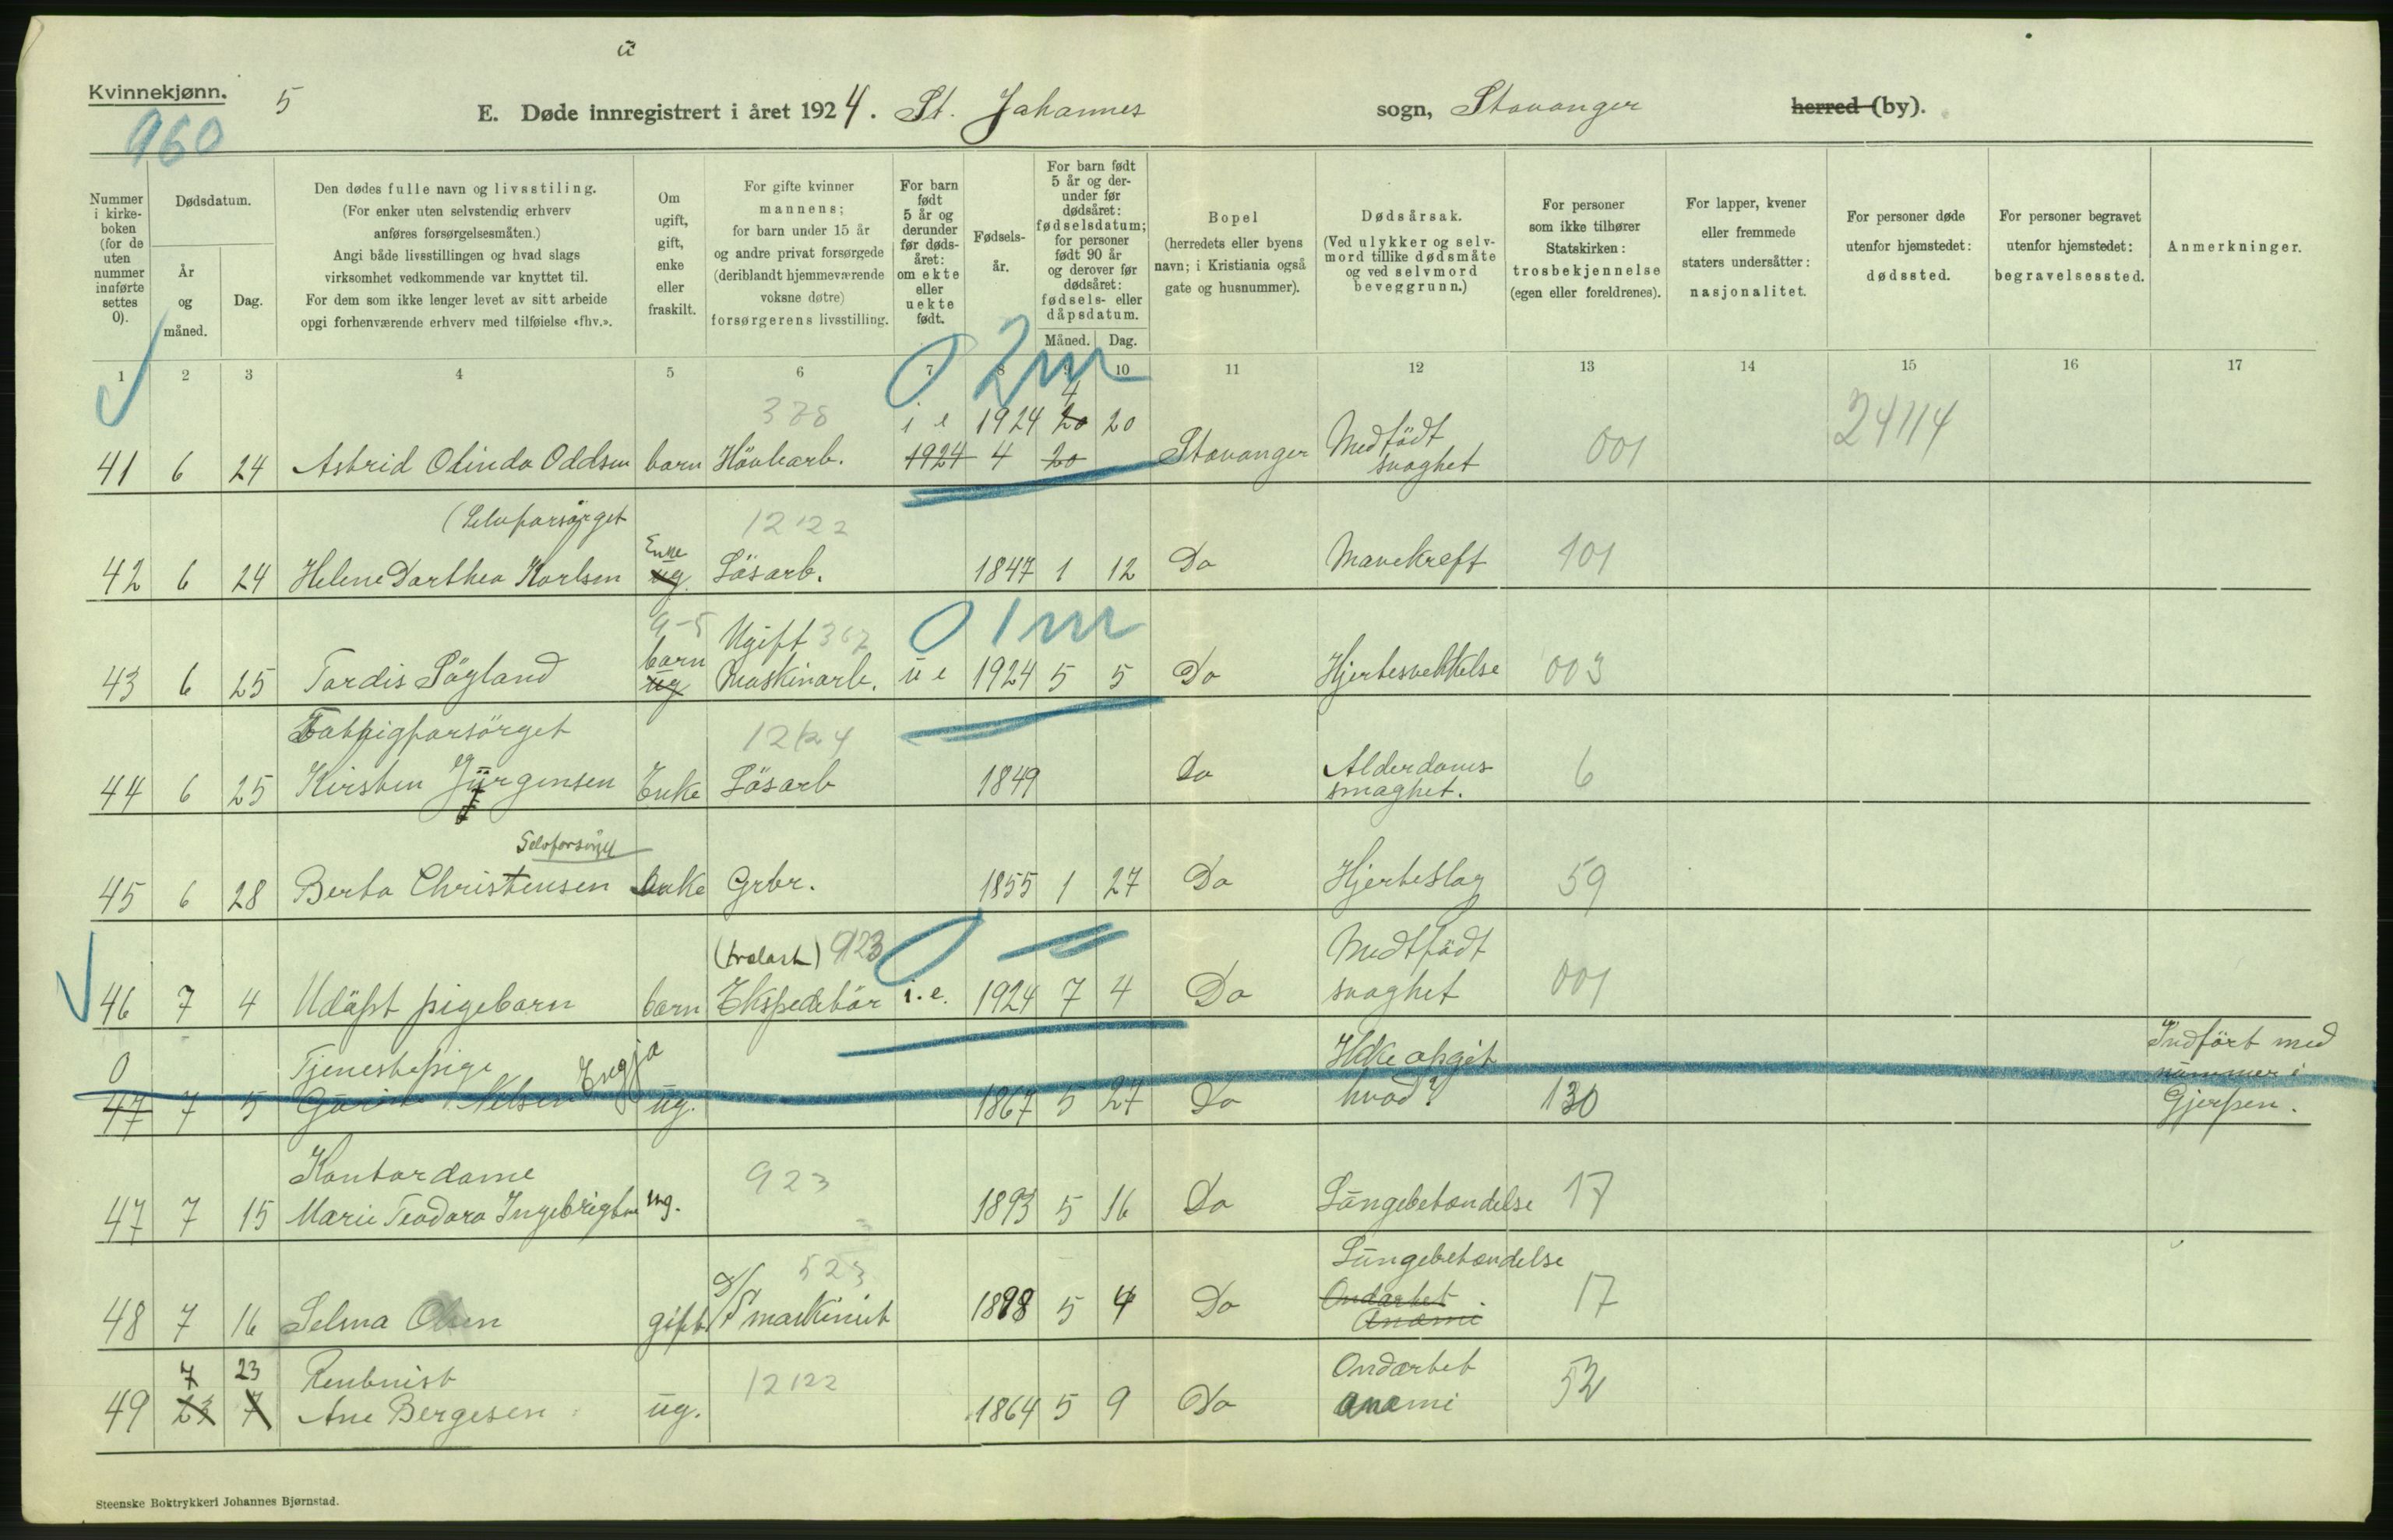 ü
Kvinnekjønn. 5
960
E. Døde innregistrert i året 1924. St. Johannes sogn, Stavanger herred (by).
Nummer i kirke-boken (for de uten nummer innførte settes 0).
Dødsdatum.
År og måned.
Dag.
Den dødes fulle navn og livsstiling.
(For enker uten selvstendig erhverv
anføres forsørgelsesmåten.)
Angi både livsstillingen og hvad slags
virksomhet vedkommende var knyttet til.
For dem som ikke lenger levet av sitt arbeide
opgi forhenværende erhverv med tilføielse «fhv.».
Om ugift, gift, enke eller fraskilt.
For gifte kvinner
mannens;
for barn under 15 år
og andre privat forsørgede
(deriblandt hjemmeværende
voksne døtre)
forsørgerens livsstilling.
For barn født 5 år og derunder før døds-året: om ekte eller uekte født.
Fødsels-år.
For barn født 5 år og der-under før dødsåret: fødselsdatum; for personer født 90 år og derover før dødsåret: fødsels- eller dåpsdatum.
Måned. Dag.
Bopel
(herredets eller byens
navn; i Kristiania også
gate og husnummer).
Dødsårsak.
(Ved ulykker og selv-
mord tillike dødsmåte
og ved selvmord
beveggrunn.)
For personer
som ikke tilhører
Statskirken:
trosbekjennelse
(egen eller foreldrenes).
For lapper, kvener
eller fremmede
staters undersåtter:
nasjonalitet.
For personer døde
utenfor hjemstedet:
dødssted.
For personer begravet
utenfor hjemstedet:
begravelsessted.
Anmerkninger.
1 2 3 4 5 6 7 8 9 10 11 12 13 14 15 16 17
0 2m
4
i e 1924 20 20 Medfödt 24114
41 6 24 Astrid Olinda Oddsen barn 1924 4 20 Stavanger svaghet 001
(Selvforsörget 12122
Enke
42 6 24 Helene Dorthea Karlsen ug. Lösarb. 1847 1 12 Do Mavekreft 101
Ugift 0 1m
barn
43 6 25 Tordis Sögland ug Maskinarb. u e 1924 5 5 Do Hjertesvekkelse 003
Fattigforsörget
Alderdoms
44 6 25 Kirsten Enke Lösarb 1849 Do svaghet. 6
Selvforsörget
45 6 28 Berta Christensen Enke Grbr. 1855 1 27 Do Hjerteslag 59
(trelast) 923 0 Medfödt
46 7 4 Udöpt pigebarn barn Ekspeditör i.e. 1924 7 4 Do svaghet 001
0 Tjenestepige Ikke opgit Indfört med
nummer i
47 7 5 Nilsen ug. 1867 5 27 Do hvad? 130 Gjerpen.
Kontordame 923
47 7 15 Marie Teodora Ingebrigtsen ug. 1893 5 16 Do Lungebetændelse 17
523 Lungebetændelse
48 7 16 Selma Olsen gift D/S maskinist 1898 5 4 Do Ondartet Anæmi 17
7 23 Rentnist 12122 Ondartet
49 23 7 Ane Bergesen ug. 1864 5 9 Do anæmi 52
Steenske Boktrykkeri Johannes Bjørnstad.